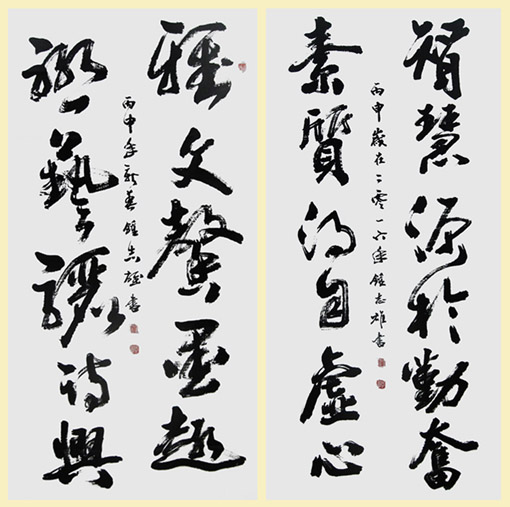 智慧源於勤奮
素質得自虛心
丙申歲在二零一六年鍾志雄書
雅文馨墨趣
藝讓詩興
丙申年新春鍾志雄書